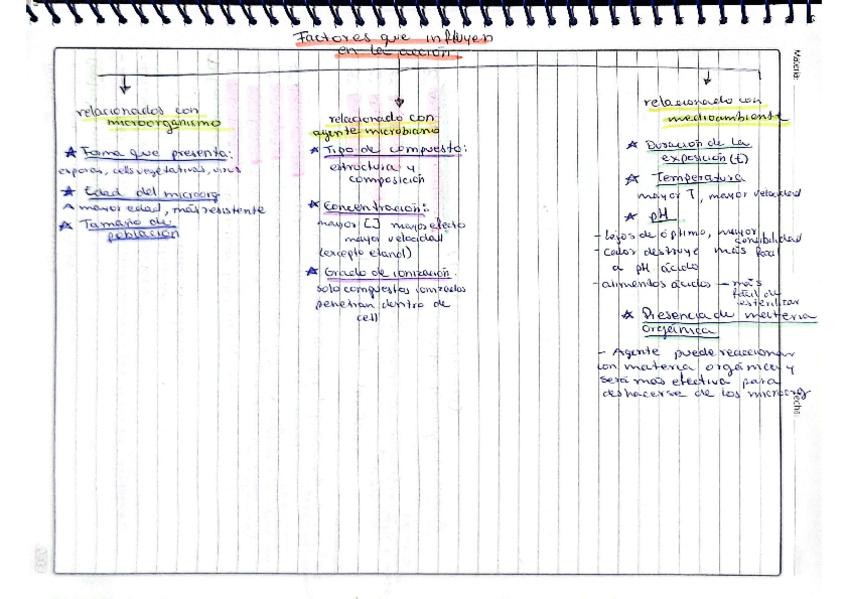 Factores que influyen
en la acción
relacionados con
microorganismo
★ Forma que presenta:
esporas, cels vegetativas, virus
★ Edad del microorg
A mayor edad, más resistente
★ Tamaño de
población
relacionado con
agente microbiano
★ Tipo de compuesto:
estructura y
composición
★ Concentración:
mayor [ ] mayor efecto
mayor velocidad
(excepto etanol)
★ Grado de ionización:
solo compuestos ionizados
penetran dentro de
cell
relacionado con
medioambiente
★ Duración de la
exposición (t)
★ Temperatura
mayor T, mayor velocidad
★ pH
- lejos de óptimo, mayor
sensibilidad
- calor destruye más fácil
a pH ácido
- alimentos ácidos — más
fácil de
esterilizar
★ Presencia de materia
orgánica
- Agente puede reaccionar
con materia orgánica y
será más efectiva para
deshacerse de los microorg
Materia
Fecha